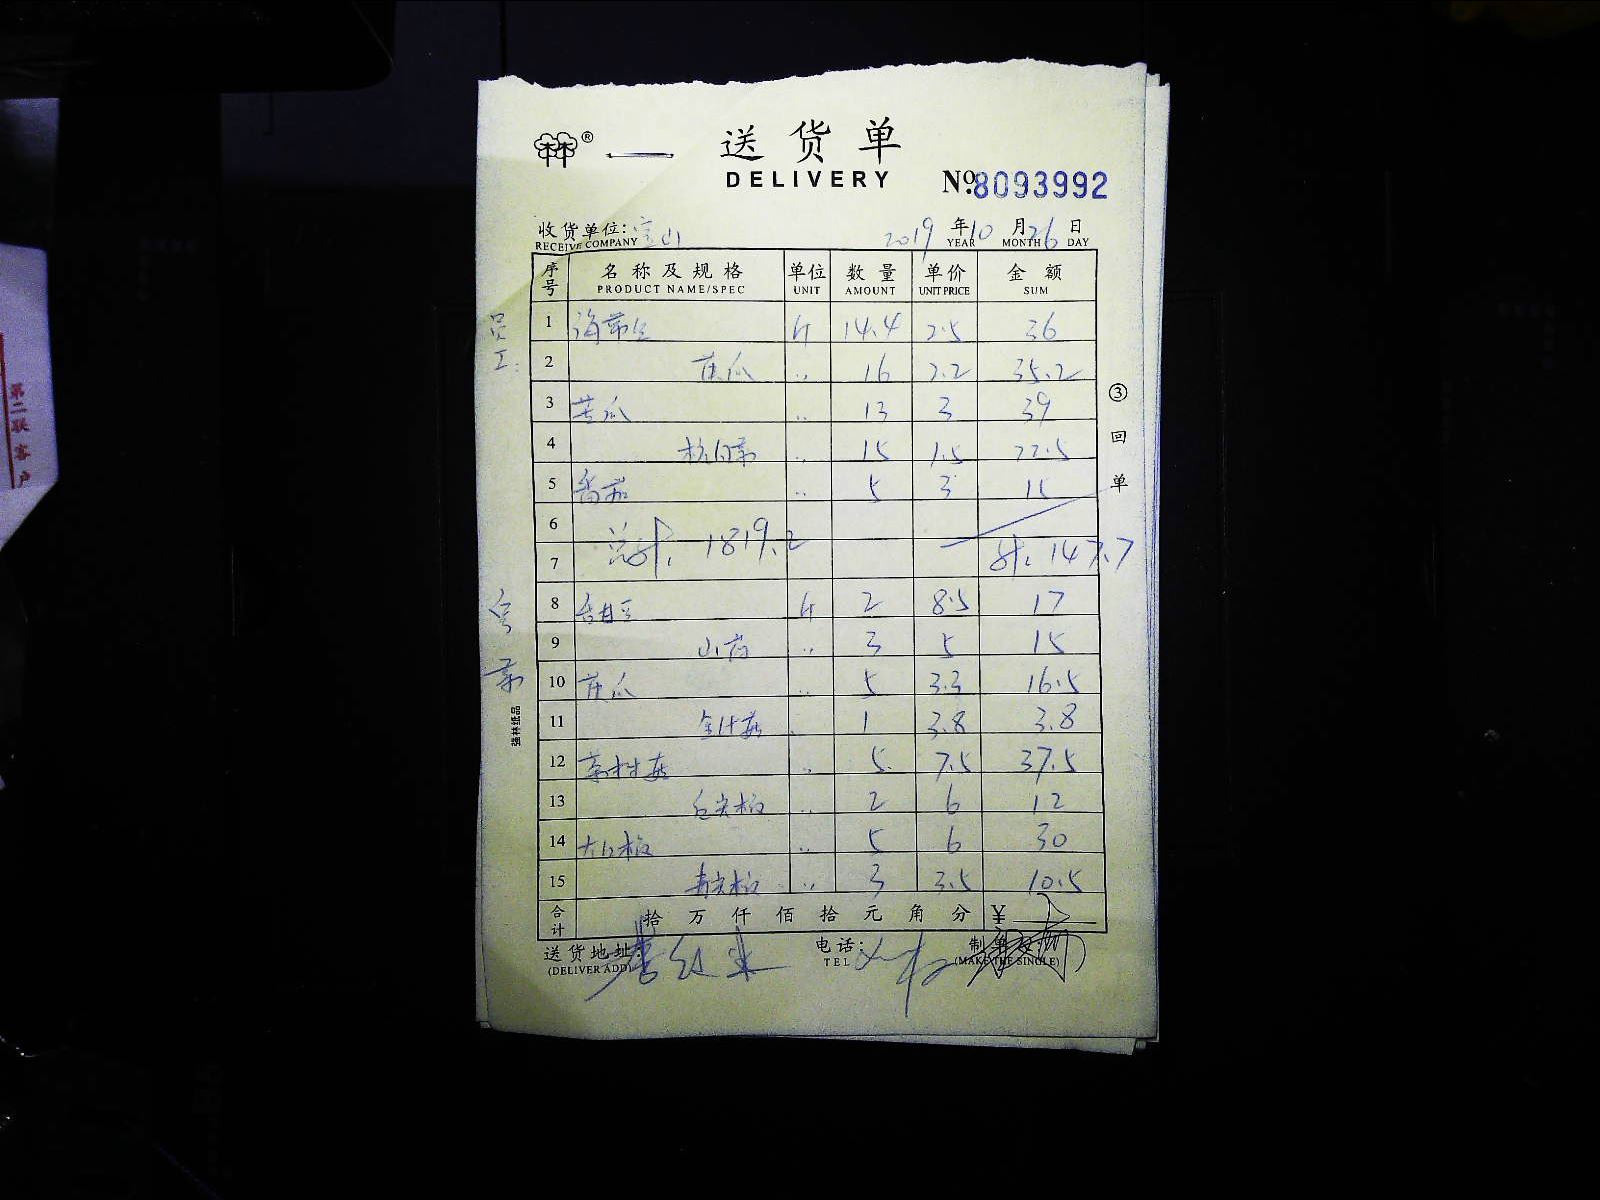 ® 送货单
DELIVERY
No. 8093992
收货单位: 宝山 2019 年 10 月 26 日
RECEIVE COMPANY YEAR MONTH DAY
序号 名称及规格 单位 数量 单价 金额
PRODUCT NAME/SPEC UNIT AMOUNT UNIT PRICE SUM
员工:
1 海带丝 斤 14.4 2.5 36
2 黄瓜 〃 16 2.2 35.2
3 苦瓜 〃 13 3 39
4 杭白菜 〃 15 1.5 22.5
5 番茄 〃 5 3 15
6
7 总计: 1819.2 计: 147.7
8 斤 2 8.5 17
9 山药 〃 3 5 15
10 黄瓜 〃 5 3.3 16.5
11 金针菇 〃 1 3.8 3.8
12 茶树菇 〃 5 7.5 37.5
13 红尖椒 〃 2 6 12
14 大红椒 〃 5 6 30
15 青尖椒 〃 3 3.5 10.5
合计 拾 万 仟 佰 拾 元 角 分 ¥
送货地址:
(DELIVER ADD)
电话:
TEL
制单
(MAKE THE SINGLE)
③回单
強林纸品
第二联客户